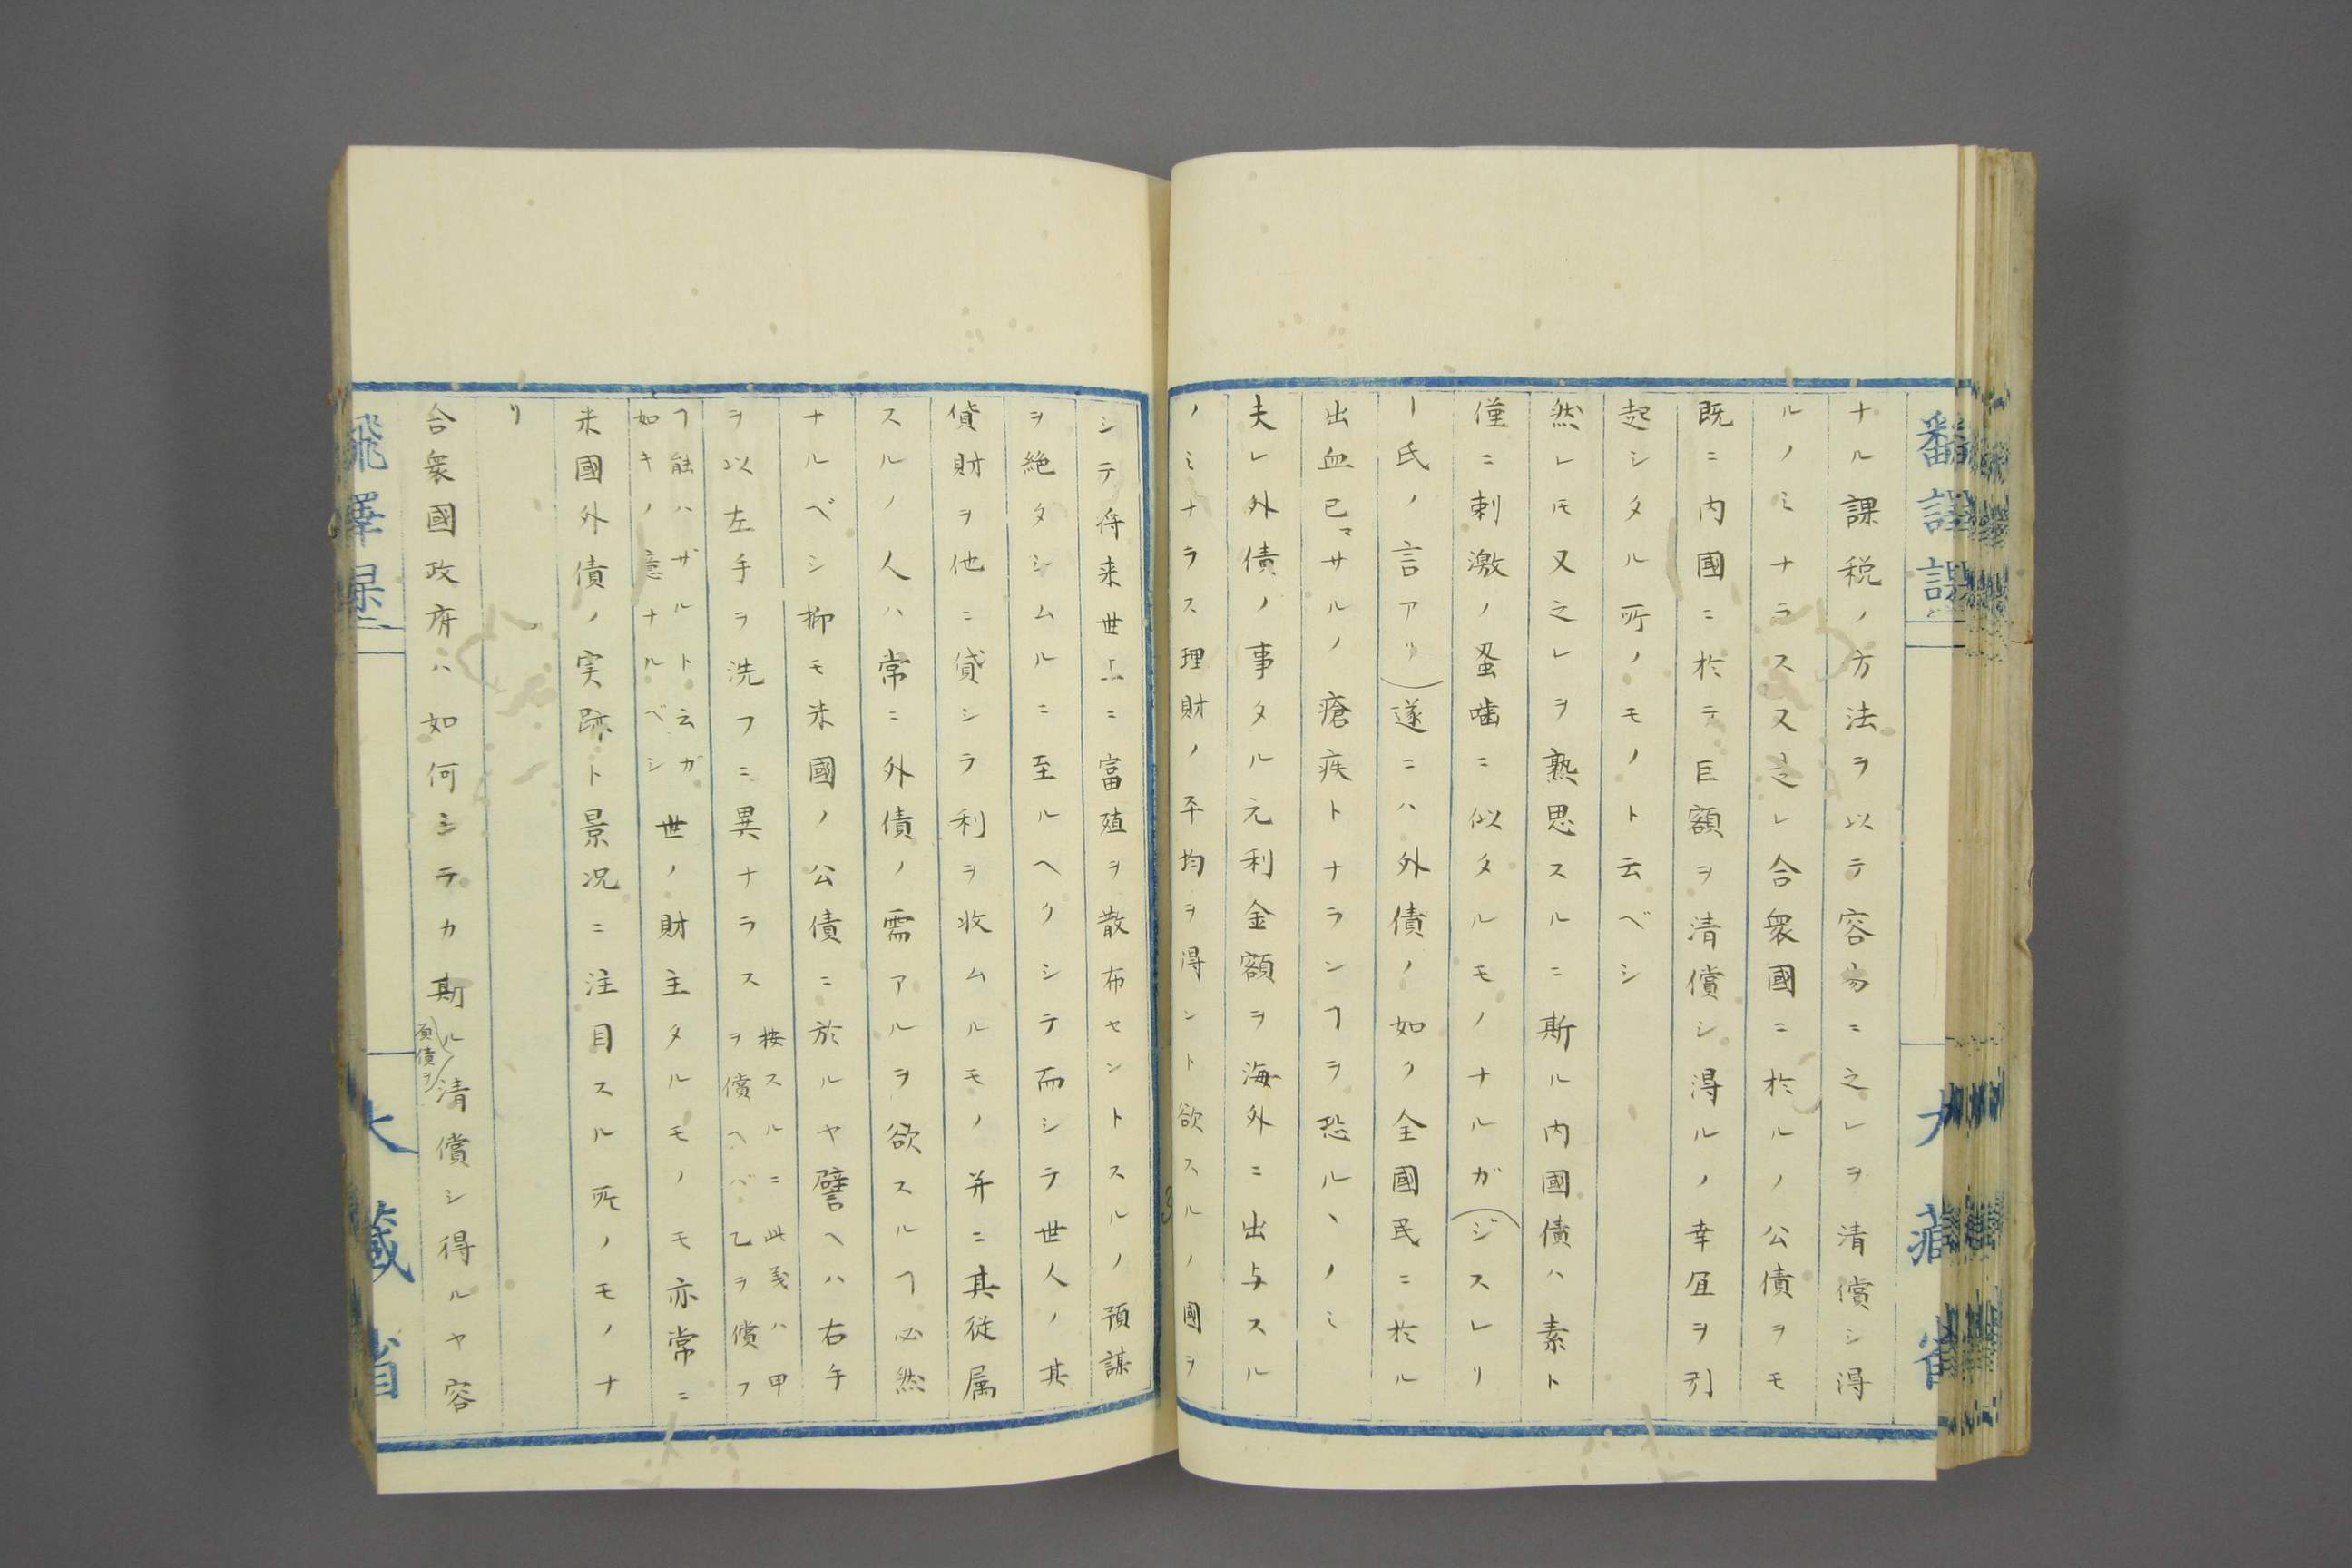 ナル課税ノ方法ヲ以テ容易ニ之レヲ清償シ得
ルノミナラス又是レ合衆國ニ於ルノ公債ヲモ
既ニ内國ニ於テ巨額ヲ清償シ得ルノ幸宜ヲ引
起シタル所ノモノト云ベシ
然レ𪜈又之レヲ熟思スルニ斯ル内國債ハ素ト
僅ニ刺激ノ蚤噛ニ似タルモノナルガ(ジスレリ
ー氏ノ言アリ)遂ニハ外債ノ如ク全國民ニ於ル
出血已マサルノ瘡疾トナランヿヲ恐ルヽノミ
夫レ外債ノ事タル元利金額ヲ海外ニ出与スル
ノミナラス理財ノ平均ヲ得ント欲スルノ國ヲ
シテ将来世上ニ富殖ヲ散布セントスルノ預謀
ヲ絶タシムルニ至ルヘクシテ而シテ世人ノ其
貨財ヲ他ニ貸シテ利ヲ收ムルモノ并ニ其従属
スルノ人ハ常ニ外債ノ需アルヲ欲スルヿ必然
ナルベシ抑モ米國ノ公債ニ於ルヤ譬ヘハ右手
ヲ以左手ヲ洗フニ異ナラス
按スルニ此義ハ甲
ヲ償ヘバ乙ヲ償フ
ヿ能ハザルト云ガ
如キノ意ナルベシ
世ノ財主タルモノモ亦常ニ
米國外債ノ実跡ト景况ニ注目スル所ノモノナ
リ
合衆國政府ハ如何シテカ斯ル負債ヲ清償シ得ルヤ容
大藏省
大藏省